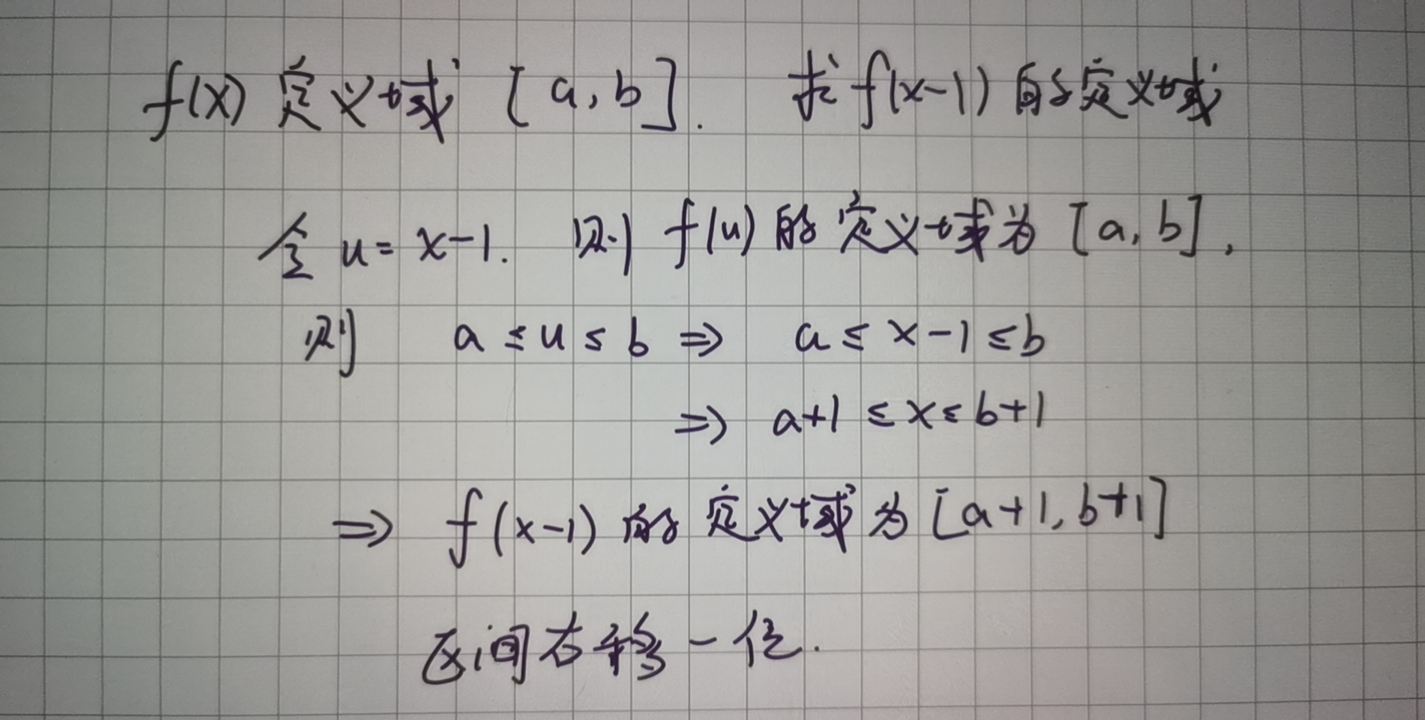 f(x) 定义域 [a, b]. 求 f(x-1) 的定义域
令 u = x-1. 则 f(u) 的定义域为 [a, b],
则 a ≤ u ≤ b ⇒ a ≤ x-1 ≤ b
⇒ a+1 ≤ x ≤ b+1
⇒ f(x-1) 的定义域为 [a+1, b+1]
区间右移一位.